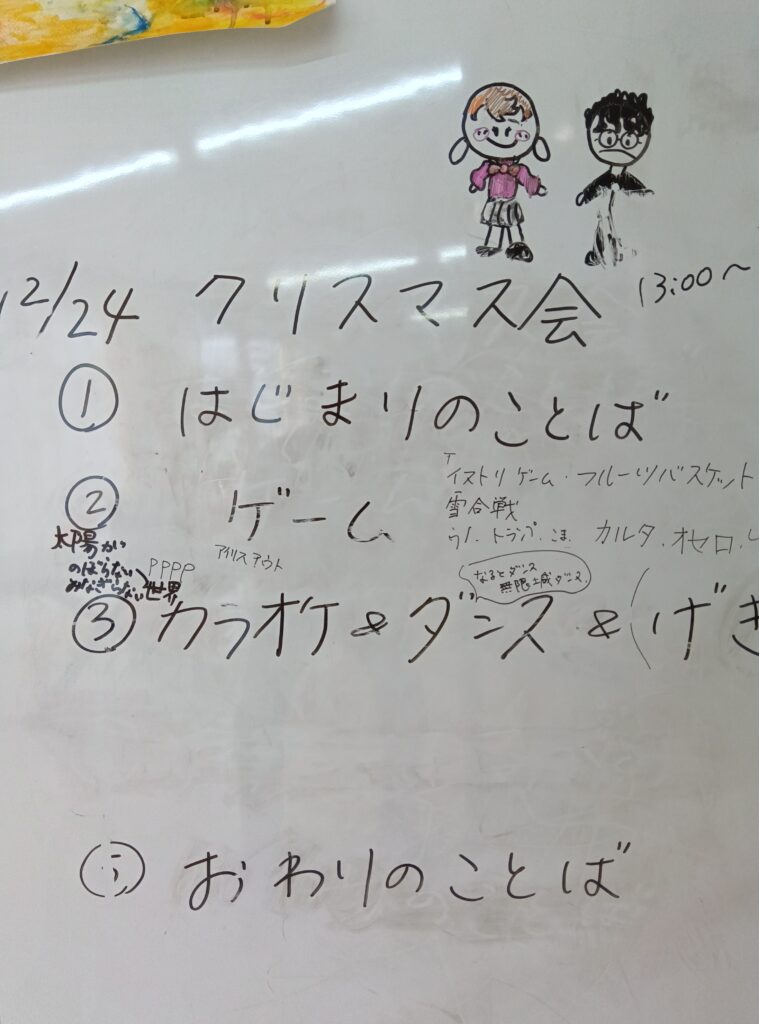 12/24 クリスマス会 13:00～
① はじまりのことば
イストリゲーム・フルーツバスケット
② ゲーム
雪合戦
トランプ.こま.カルタ.オセロ.
アイリスアウト
太陽が
のぼらない
みなぎらない世界
PPPP
なるとダンス
無限城ダンス
③ カラオケ & ダンス & (げき
おわりのことば